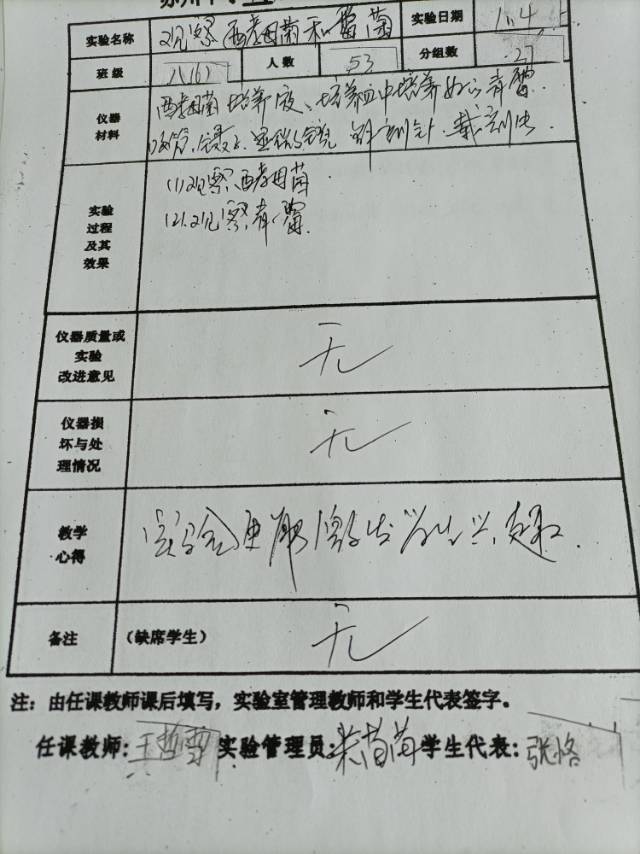 实验名称 观察酵母菌和霉菌 实验日期 11.4
班级 八(6) 人数 53 分组数 27
仪器材料 酵母菌培养液、培养皿中培养好的青霉
吸管、镊子、显微镜、解剖针、载玻片
实验过程及其效果 (1)观察酵母菌
(2)观察青霉
仪器质量或实验改进意见 无
仪器损坏与处理情况 无
教学心得 实验更能激发学生兴趣.
备注 (缺席学生) 无
注：由任课教师课后填写，实验室管理教师和学生代表签字。
任课教师: 王哲雪 实验管理员: 苗苗 学生代表: 张恪